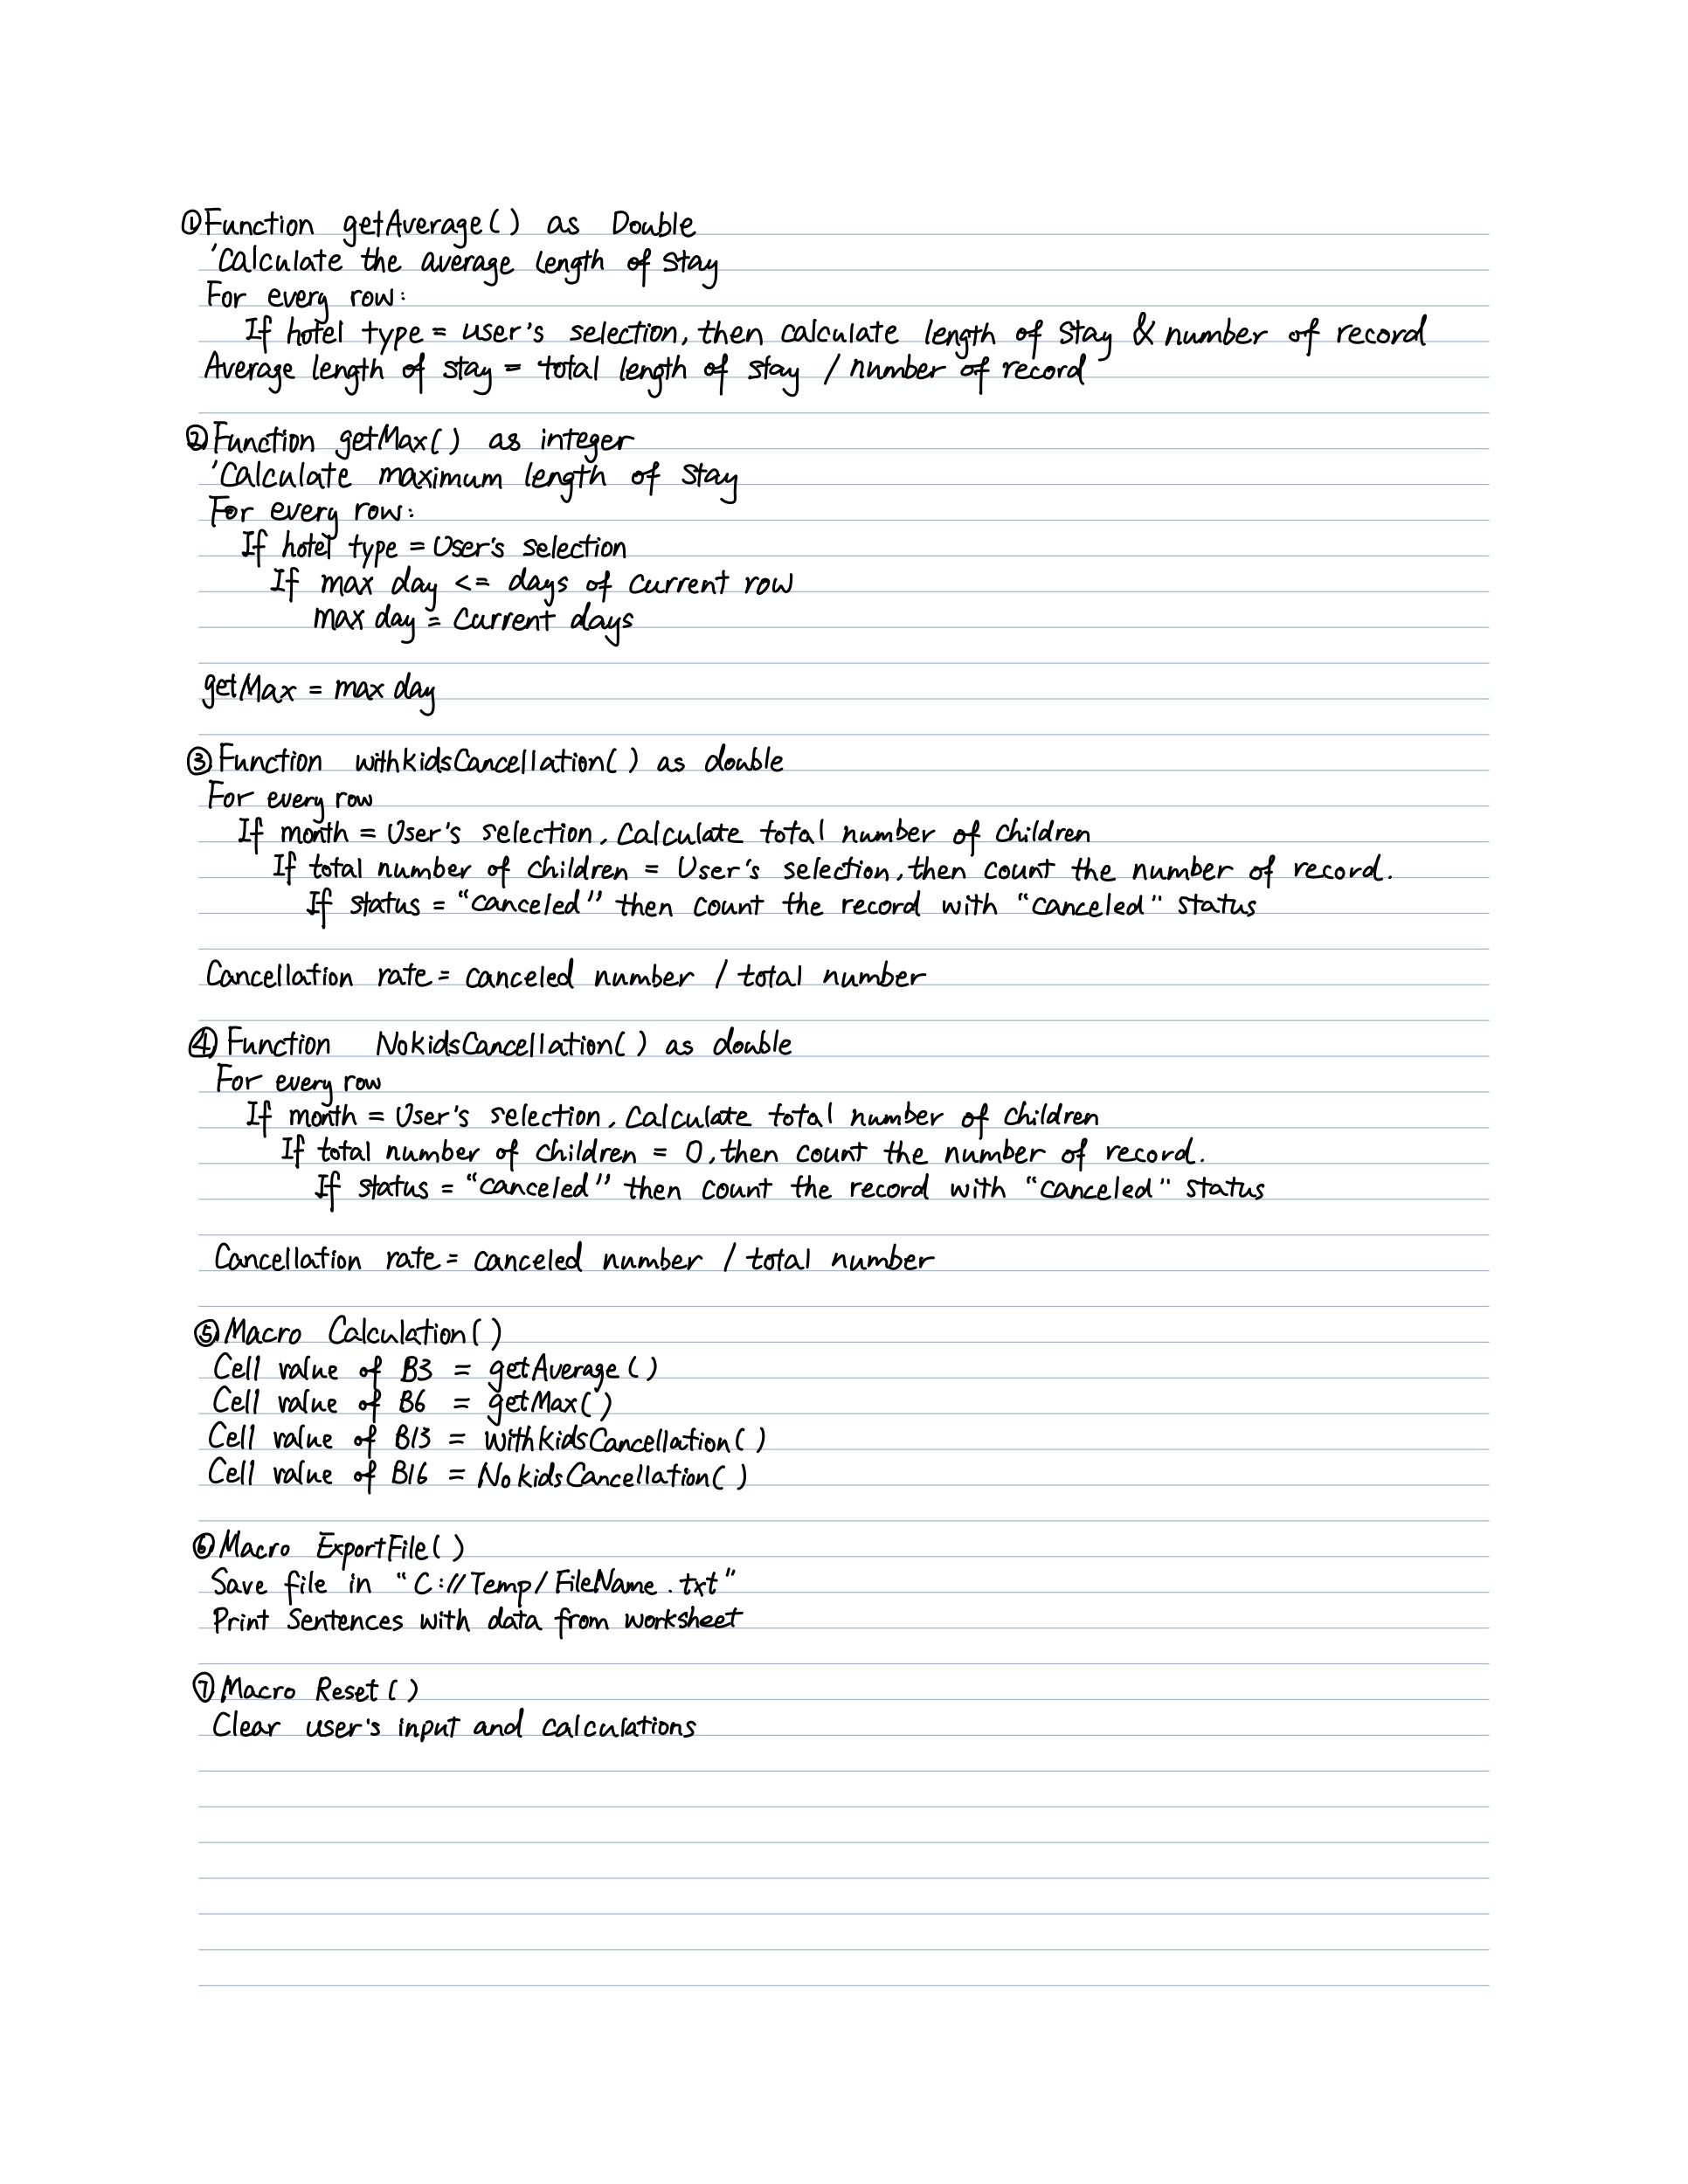 ①Function getAverage() as Double
'Calculate the average length of stay
For every row:
If hotel type = user's selection, then calculate length of stay & number of record
Average length of stay = total length of stay / number of record
②Function getMax() as integer
'Calculate maximum length of stay
For every row:
If hotel type = User's selection
If max day <= days of current row
max day = Current days
getMax = max day
③Function withkidsCancellation() as double
For every row
If month = User's selection, Calculate total number of children
If total number of children = User's selection, then count the number of record.
If status = "canceled" then count the record with "canceled" status
Cancellation rate = canceled number / total number
④Function NokidsCancellation() as double
For every row
If month = User's selection, Calculate total number of children
If total number of children = 0, then count the number of record.
If status = "canceled" then count the record with "canceled" status
Cancellation rate = canceled number / total number
⑤Macro Calculation()
Cell value of B3 = getAverage()
Cell value of B6 = getMax()
Cell value of B13 = withkidsCancellation()
Cell value of B16 = NokidsCancellation()
⑥Macro ExportFile()
Save file in "C://Temp/FileName.txt"
Print Sentences with data from worksheet
⑦Macro Reset()
Clear user's input and calculations